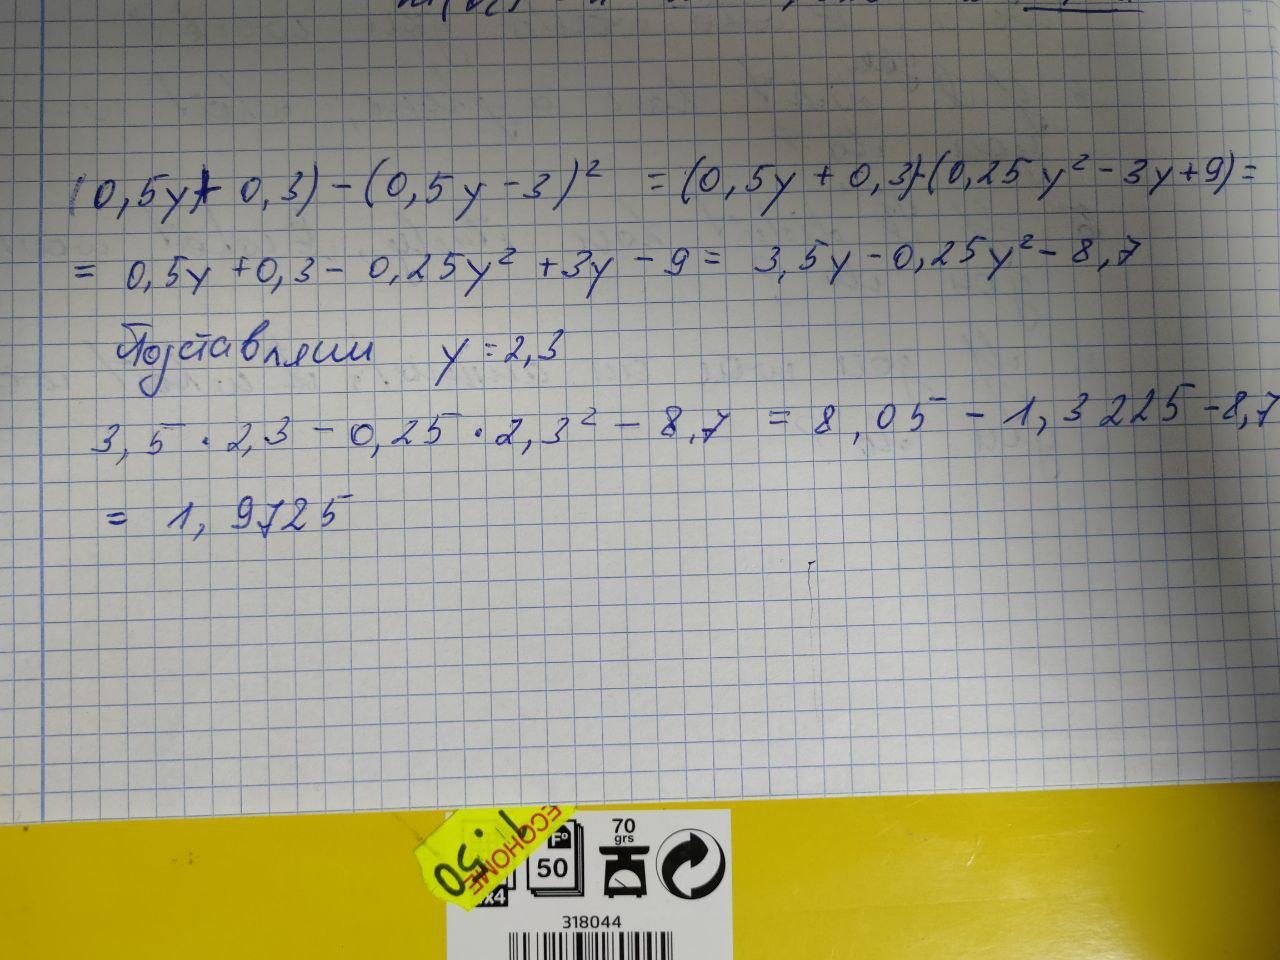 (0,5y + 0,3) - (0,5y - 3)² = (0,5y + 0,3)-(0,25y² - 3y + 9) =
= 0,5y + 0,3 - 0,25y² + 3y - 9 = 3,5y - 0,25y² - 8,7
Подставляем y = 2,3
3,5 · 2,3 - 0,25 · 2,3² - 8,7 = 8,05 - 1,3225 - 8,7
= 1,9725
1.50
ECOHOME
Fº
50
70
grs
x4
318044